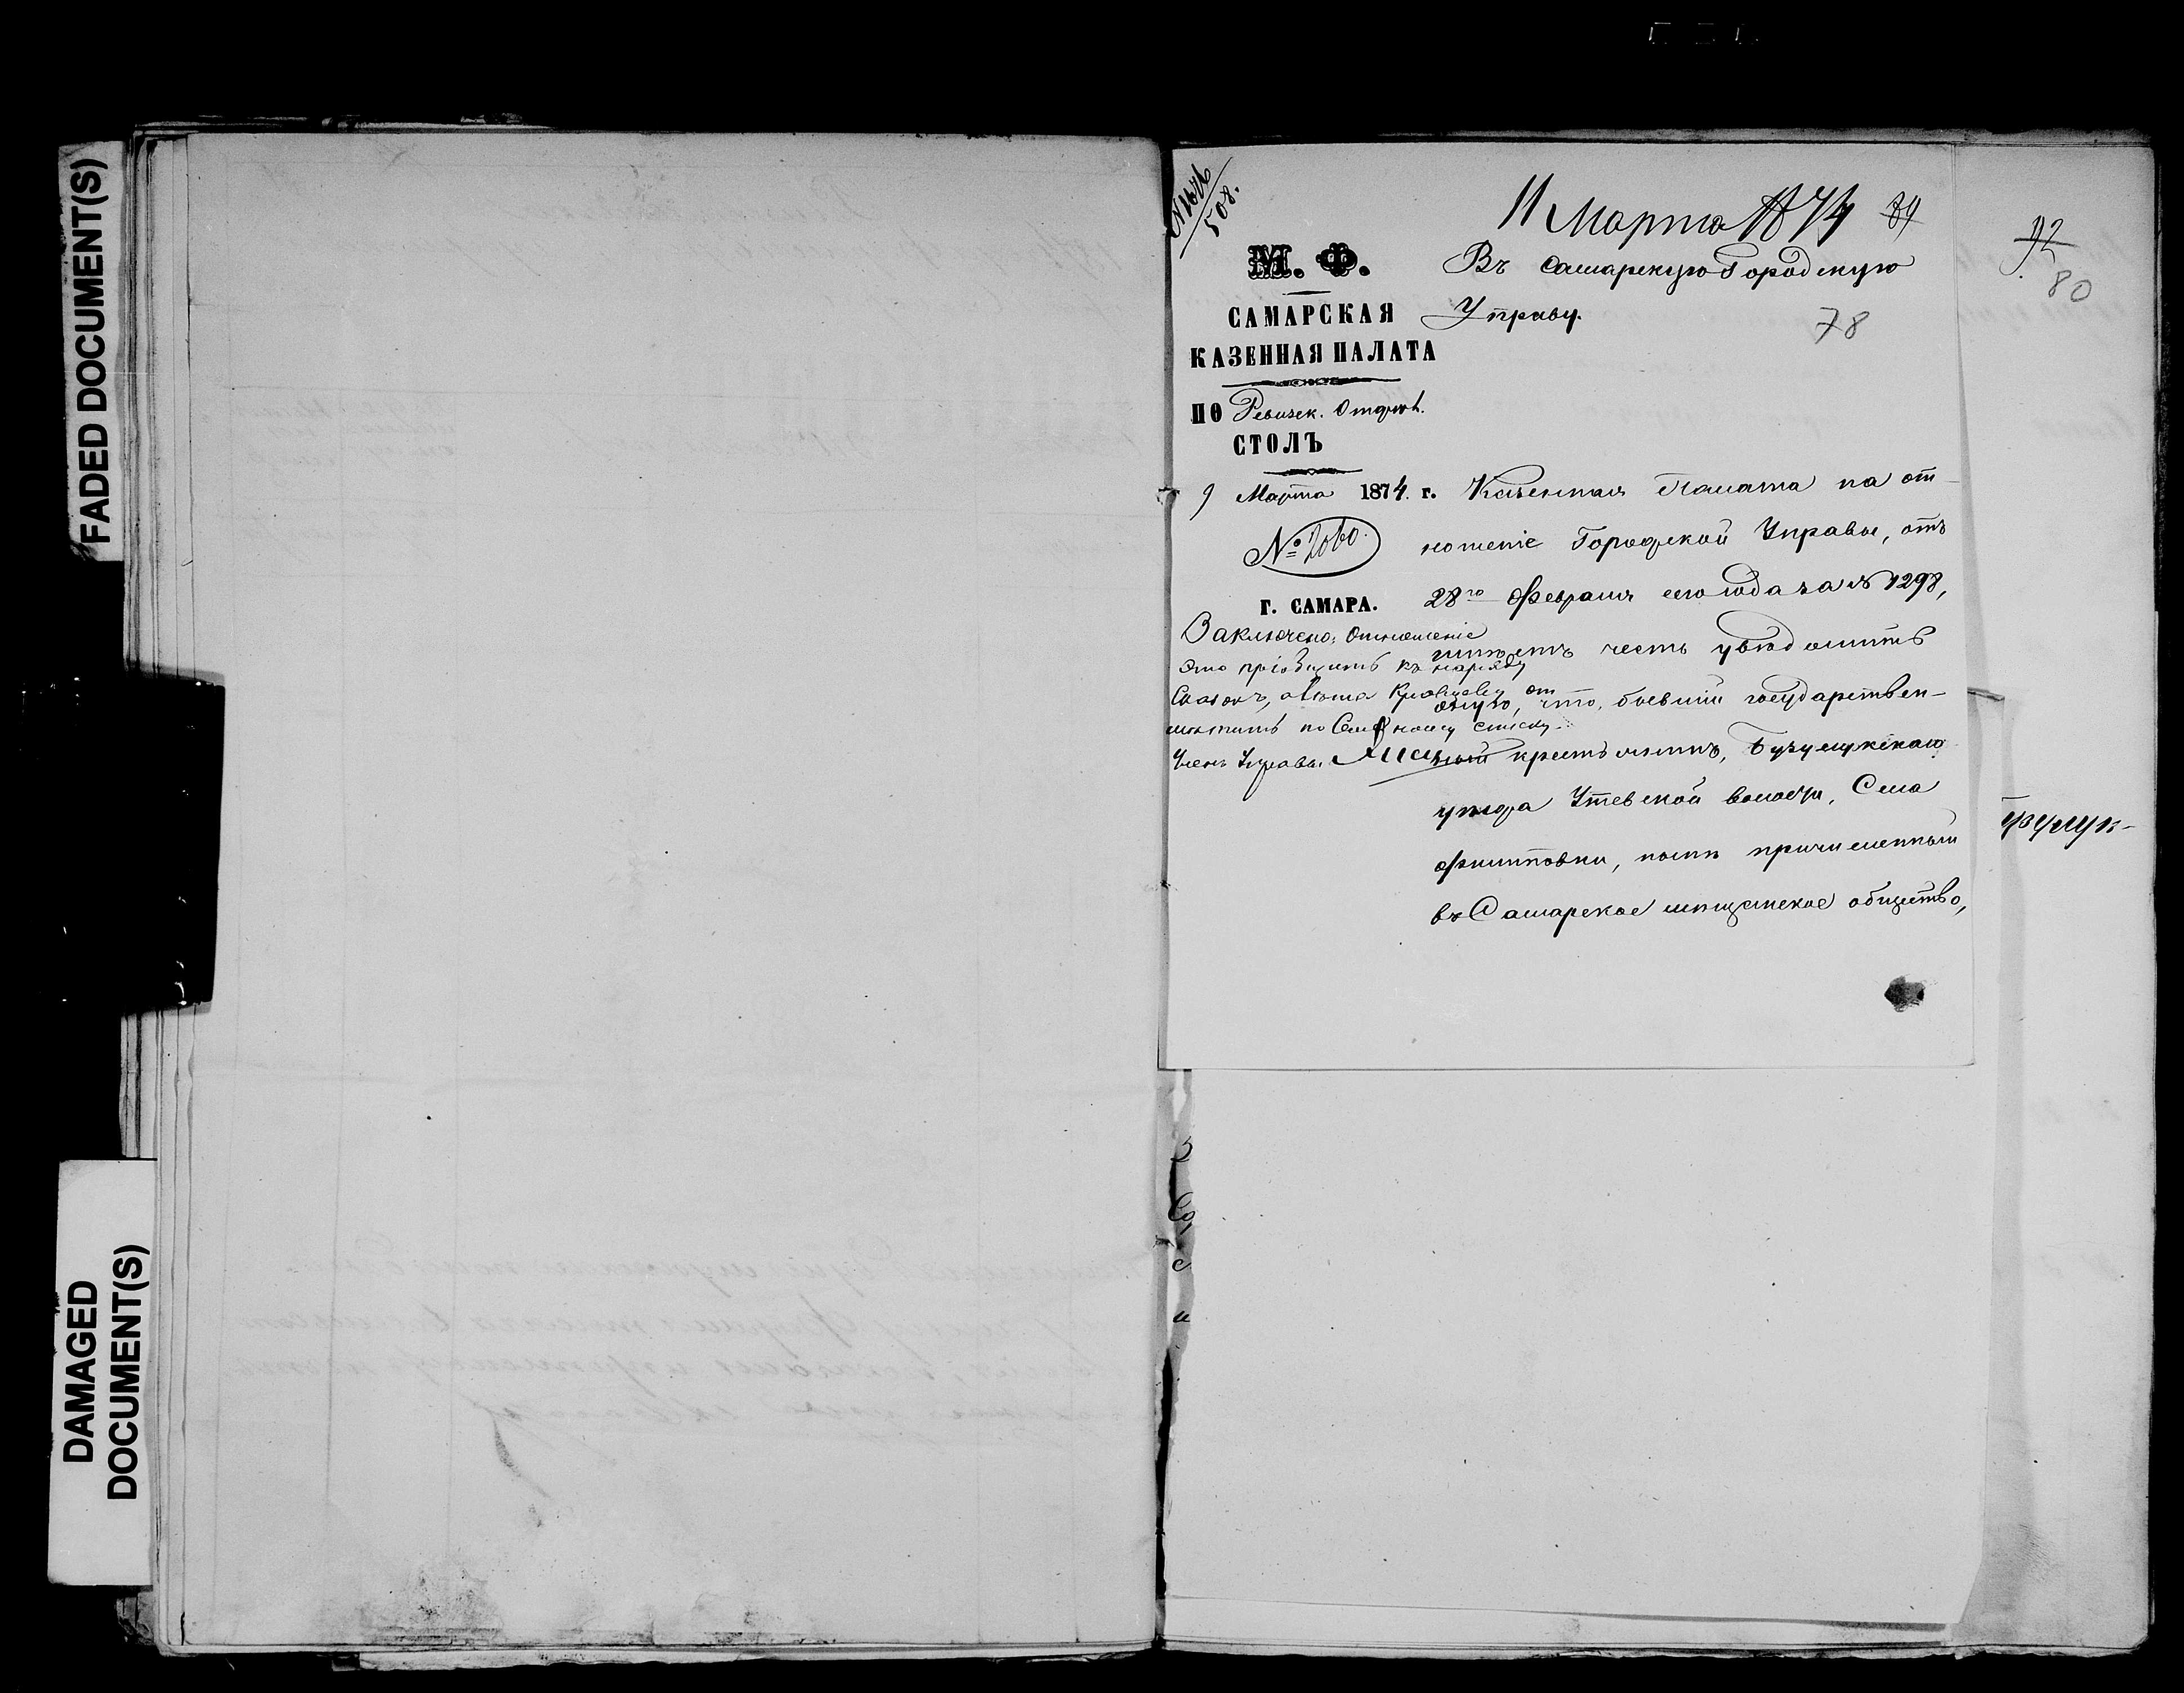 FADED DOCUMENT(S)
DAMAGED
DOCUMENT(S)
508.
11 Марта 1874
92
80
78
М. Ф.
САМАРСКАЯ
КАЗЕННАЯ ПАЛАТА
ПО Ревизск. Отдѣл.
СТОЛЪ
9 Марта 1874. г.
№ 2060.
Г. САМАРА.
Въ Самарскую Городскую
Управу.
Казенная Палата на от-
ношеніе Городской Управы, отъ
28го Февраля сего года за № 1298,
имѣетъ честь увѣдомить
оную, что бывшій государствен-
ный крестьянинъ, Бузулукскаго
уѣзда Утевской волости, Села
Филиповки, нынѣ причисленный
въ Самарское мѣщанское общество,
Заключено: Отношеніе
это пріобщить къ наряду
Сказокъ, а отъ
по Семейному списку
Членъ Управы